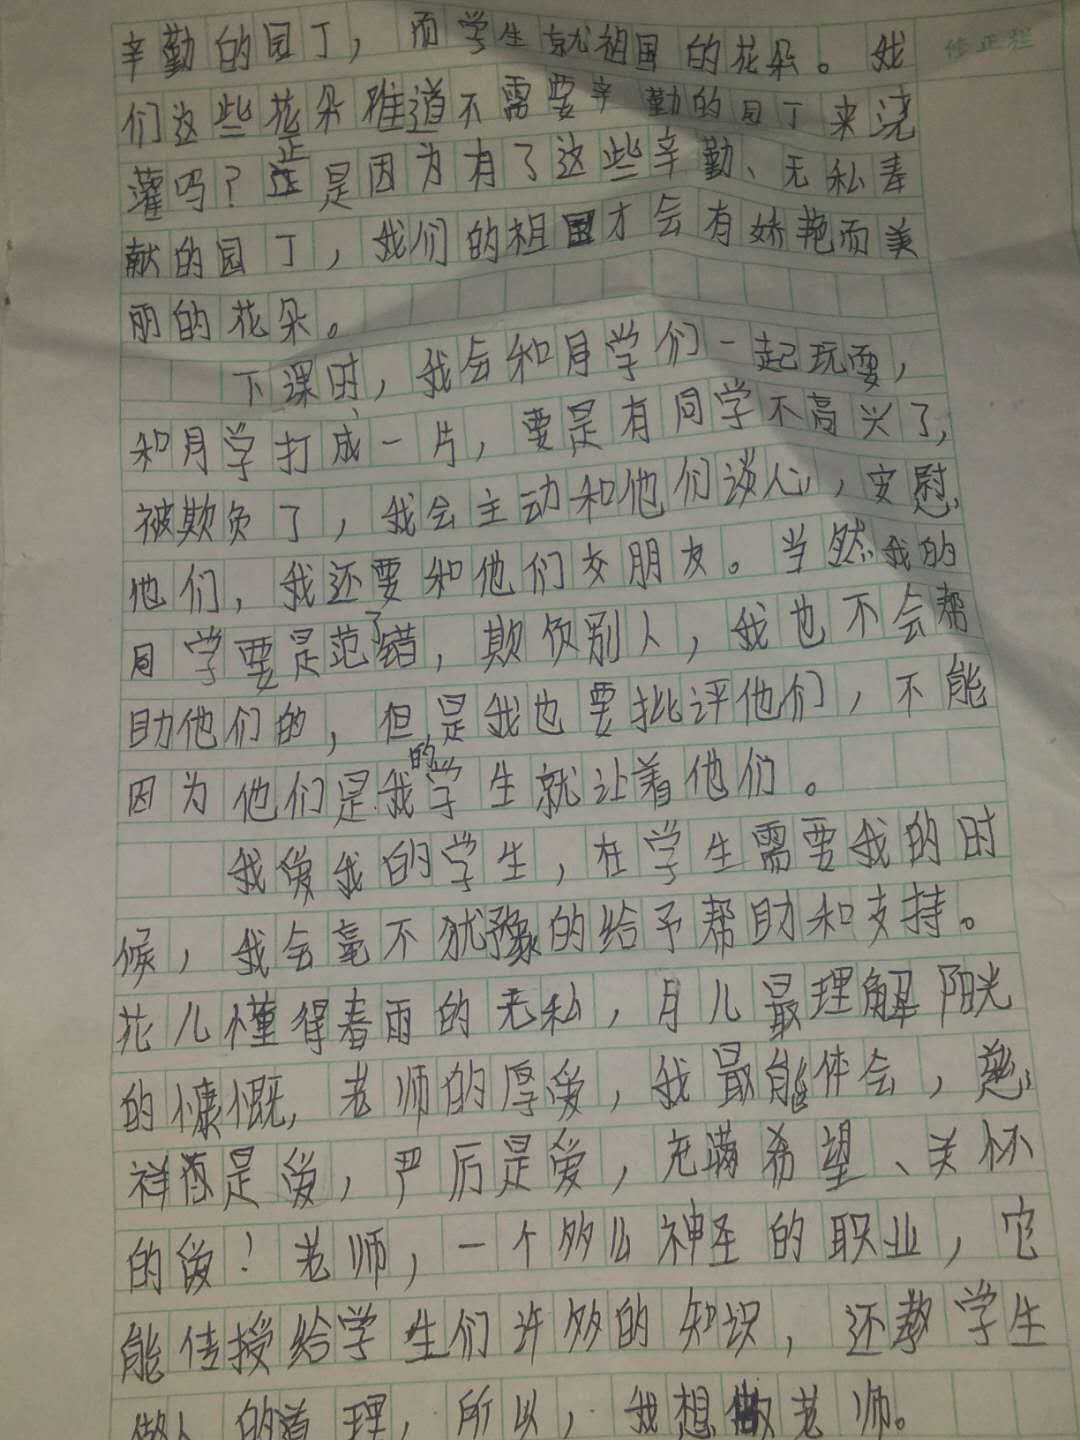 辛勤的园丁，而学生就祖国的花朵。她
修正栏
们这些花朵难道不需要辛勤的园丁来浇
灌吗？正是因为有了这些辛勤、无私奉
献的园丁，我们的祖国才会有娇艳而美
丽的花朵。
下课时，我会和同学们一起玩耍，
和同学打成一片，要是有同学不高兴了，
被欺负了，我会主动和他们谈心，安慰
他们，我还要和他们交朋友。当然我的
同学要是范了错，欺负别人，我也不会帮
助他们的，但是我也要批评他们，不能
因为他们是我的学生就让着他们。
我爱我的学生，在学生需要我的时
候，我会毫不犹豫的给予帮助和支持。
花儿懂得春雨的无私，月儿最理解阳光
的慷慨，老师的厚爱，我最能体会，慈
祥是爱，严厉是爱，充满希望、关怀
的爱！老师，一个多么神圣的职业，它
能传授给学生们许多的知识，还教学生
做人的道理，所以，我想做老师。